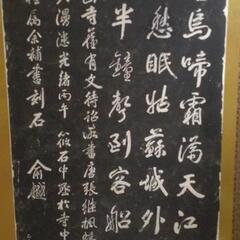 烏啼霜滿天江
愁眠姑蘇城外
半鐘聲到客船
山寺舊有文待詔所書唐張繼楓
漫漶光緒丙午筱石中丞於寺中
屬余補書刻石 俞樾